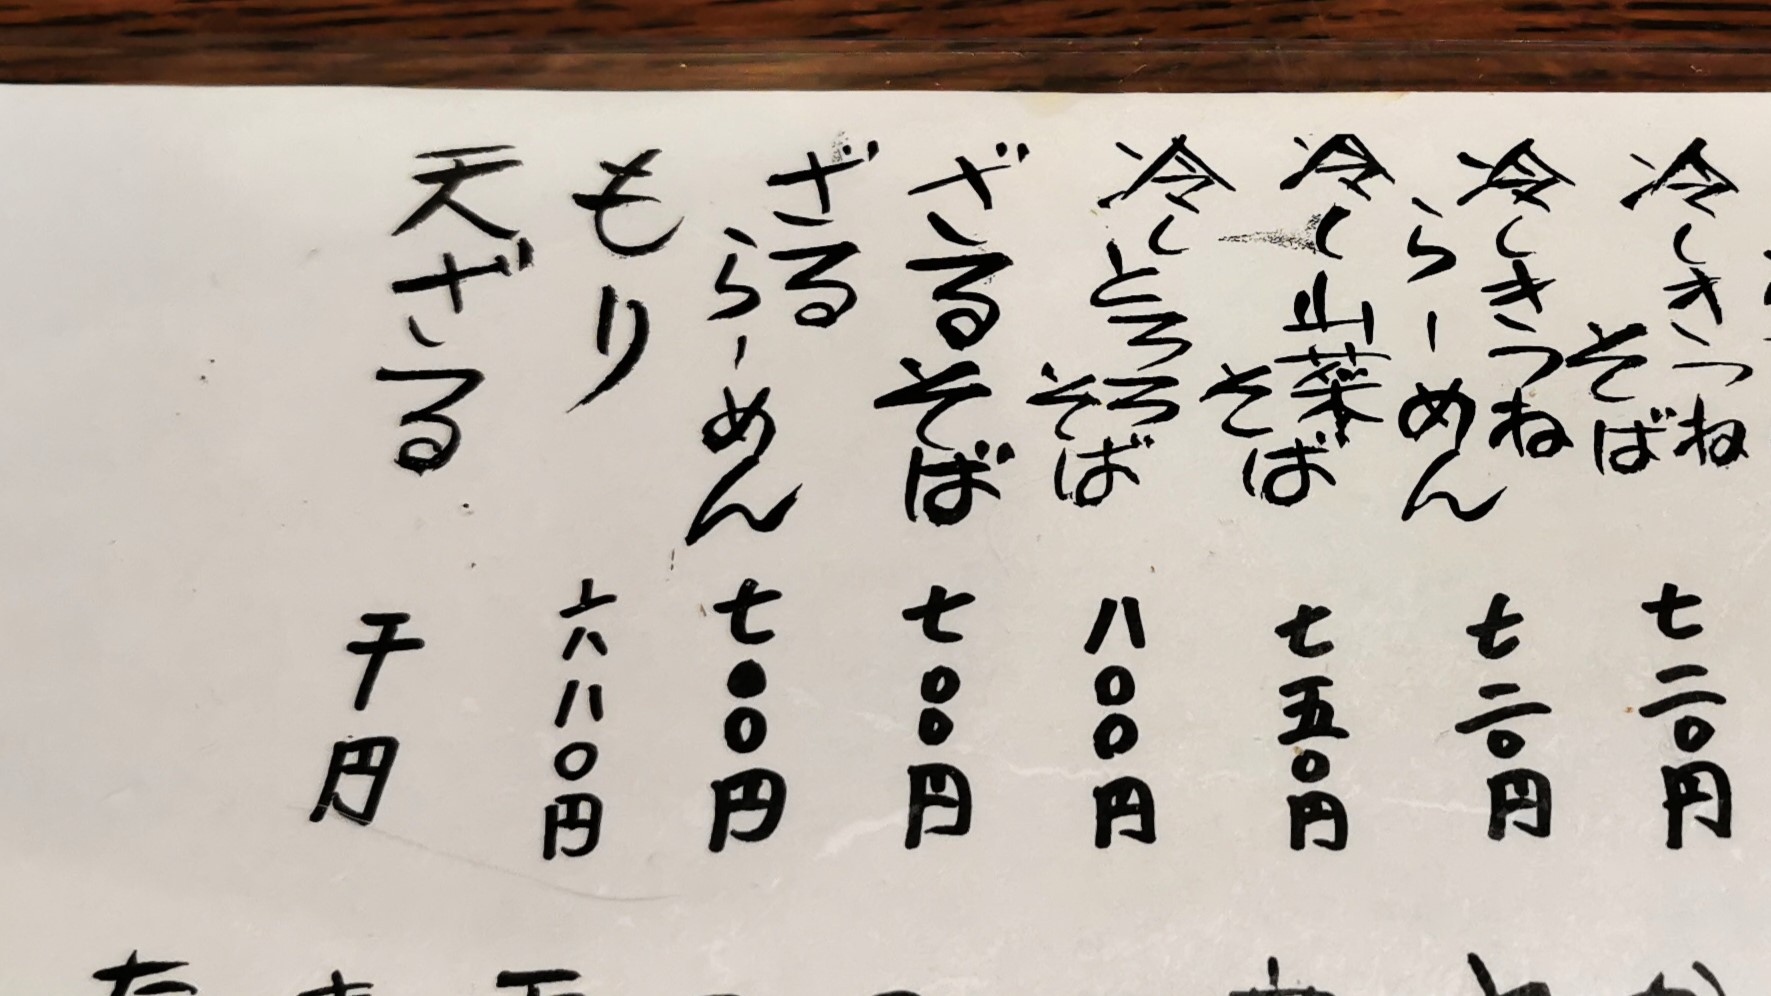 冷しきつねそば 七二〇円
冷しきつねらーめん 七二〇円
冷し山菜そば 七五〇円
冷しとろろそば 八〇〇円
ざるそば 七〇〇円
ざるらーめん 七〇〇円
もり 六八〇円
天ざる 千円